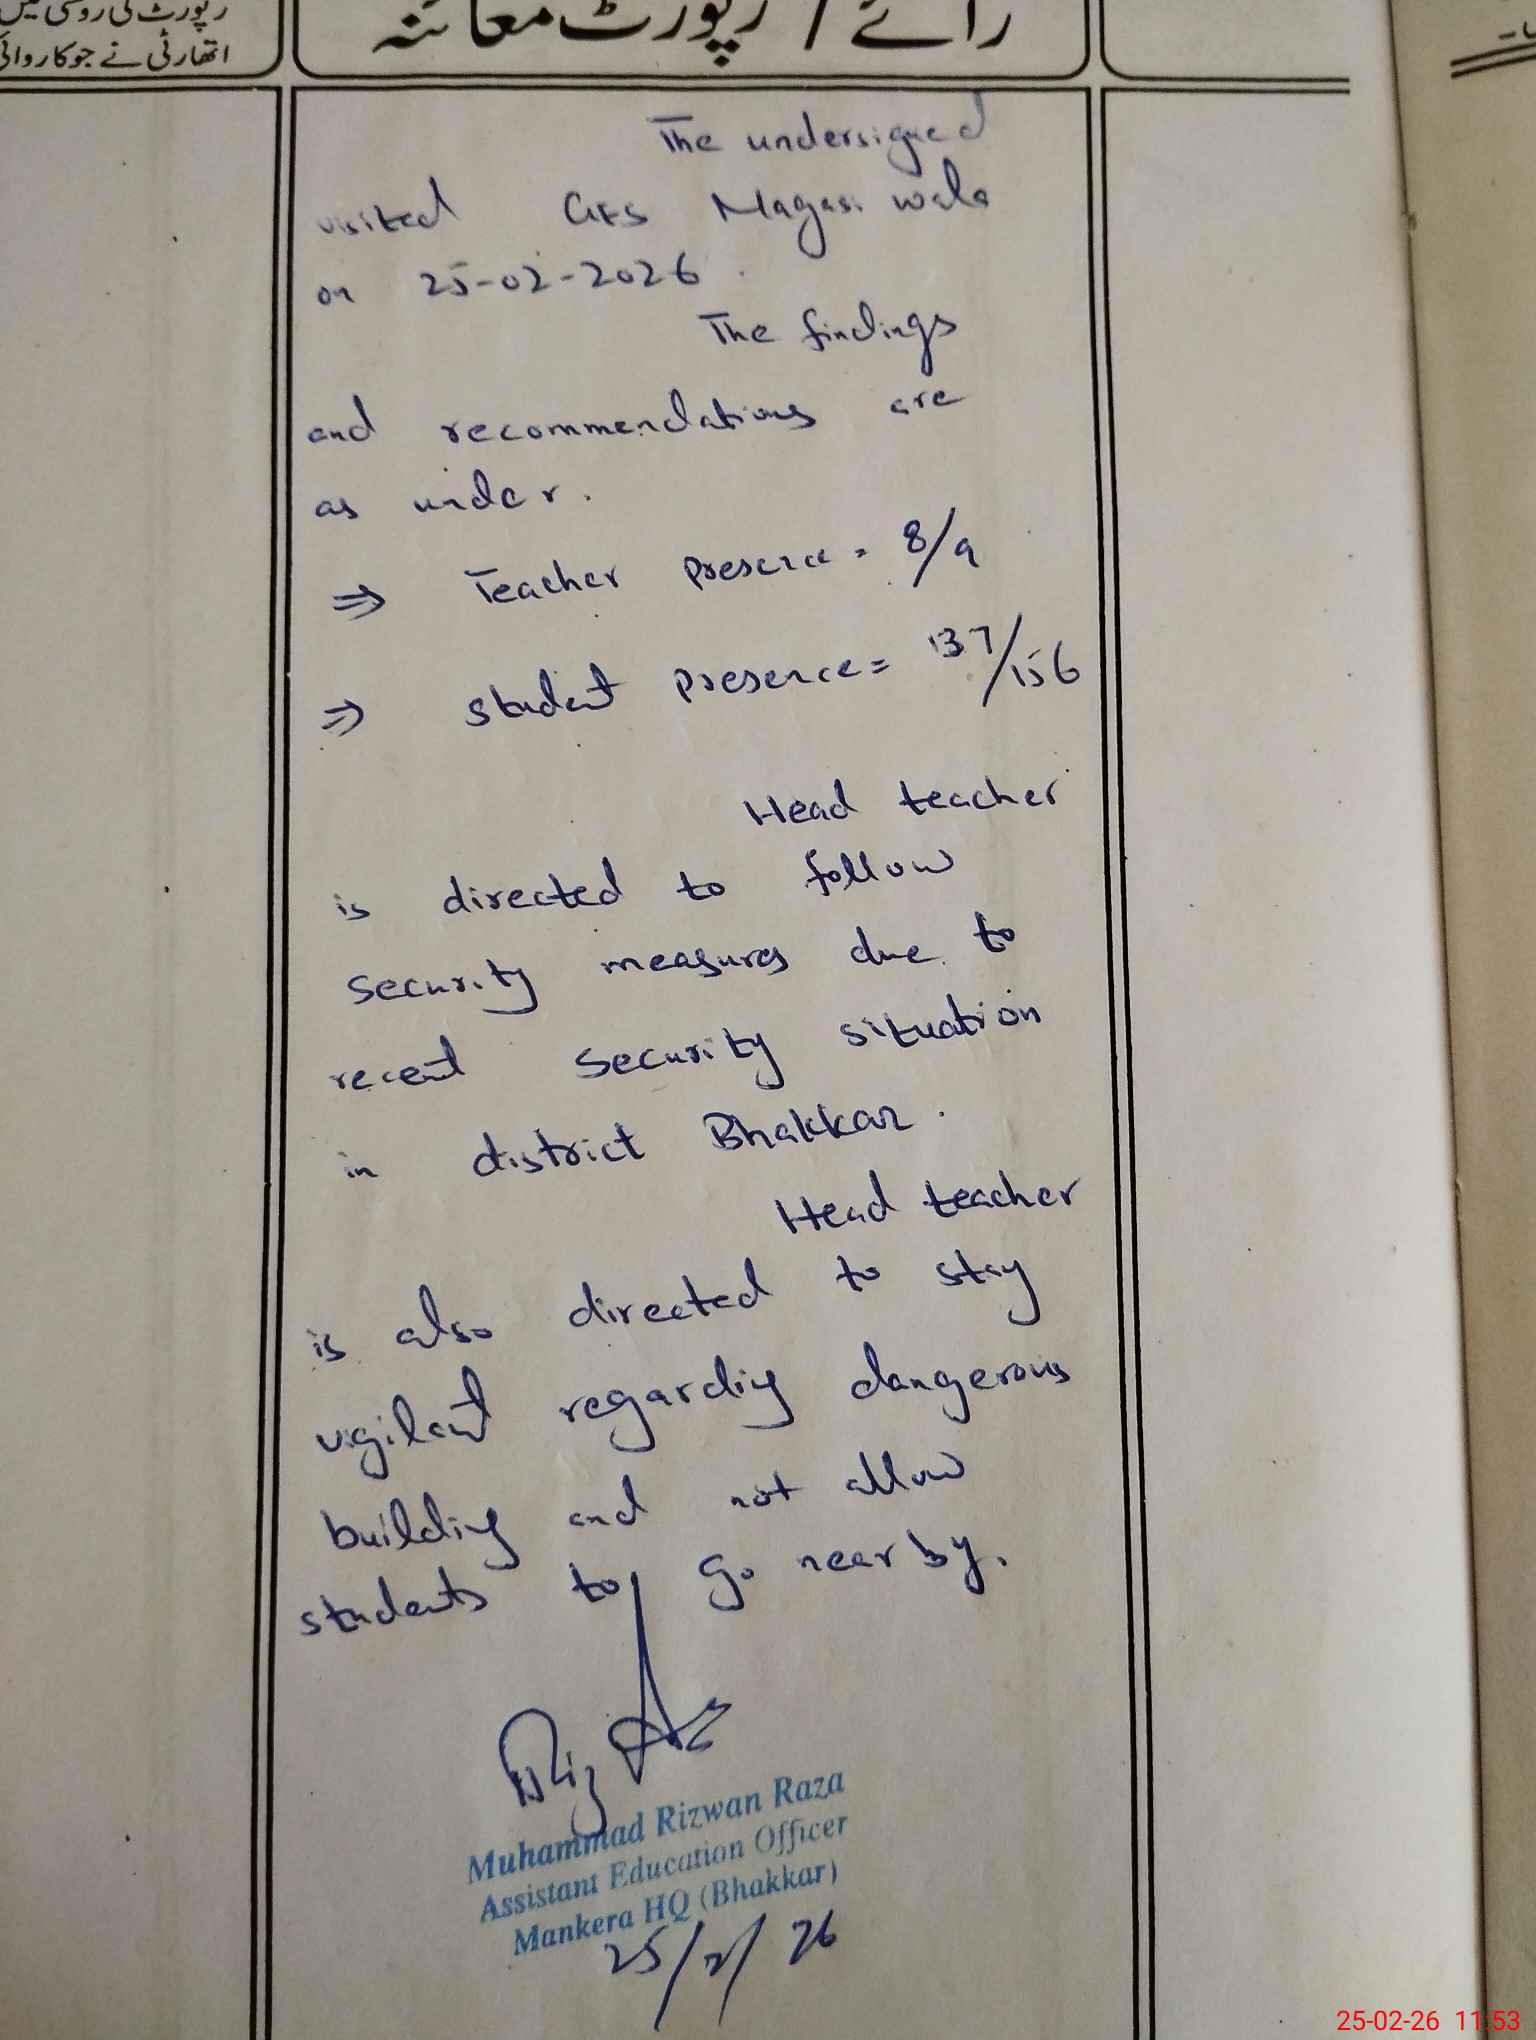 رپورٹ کی روشنی میں
اتھارٹی نے جو کاروائی
رائے / رپورٹ معائنہ
The undersigned
visited GES Magasi wala
on 25-02-2026.
The findings
and recommendations are
as under.
⇒ Teacher presence = 8/9
⇒ student presence = 137/156
Head teacher
is directed to follow
security measures due to
recent security situation
in district Bhakkar.
Head teacher
is also directed to stay
vigilant regarding dangerous
building and not allow
students to go near by.
Muhammad Rizwan Raza
Assistant Education Officer
Mankera HQ (Bhakkar)
25/2/26
25-02-26 11:53